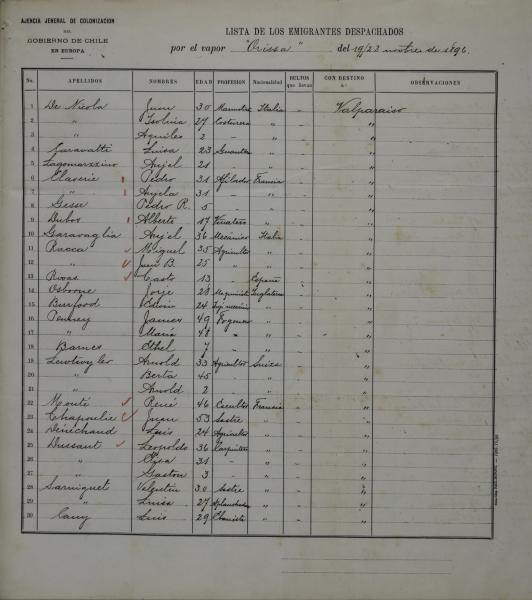 AJENCIA JENERAL DE COLONIZACION
DEL
GOBIERNO DE CHILE
EN EUROPA
LISTA DE LOS EMIGRANTES DESPACHADOS
por el vapor "Orissa" del 19/22 novbre de 1896.
No. APELLIDOS NOMBRES EDAD PROFESION Nacionalidad BULTOS que llevan CON DESTINO a: OBSERVACIONES
1 De Nicola Juan 30 Italia " Valparaiso
2 " Isolina 27 Costurera " " "
3 " Aquiles 2 - " " "
4 Luisa 23 " " "
5 Lagomarzzino Anjel 21 - " " "
6 Claverie Pedro 31 Afilador Francia " "
7 " Anjela 31 - " " "
8 Gesse Pedro R. 5 - " " "
9 Dubos Alberto 17 " " "
10 Garavaglia Anjel 36 Mecánico Italia " "
11 Rucca Miguel 35 Agricultor " " "
12 " Juan B. 25 " " " "
13 Rivas Casto 13 - España " "
14 Osborne Jorje 28 Maquinista Inglaterra " "
15 Burford Edwin 24 " " "
16 James 49 Fogonero " " "
17 " Maria 48 " " " "
18 Barnes Ethel 7 " " " "
19 Arnold 33 Agricultor Suiza " "
20 " Berta 45 - " " "
21 " Arnold 2 - " " "
22 René 46 Escultor Francia " "
23 Chapoulie Juan 53 Sastre " " "
24 Dénéchaud Luis 24 Agricultor " " "
25 Dussant Leopoldo 36 Carpintero " " "
26 " 31 - " " "
27 " Gaston 3 - " " "
28 Sarniguet Valentin 30 Sastre " " "
29 " Luisa 27 Aplanchadora " " "
30 Cauy Luis 29 Ebanista " " "